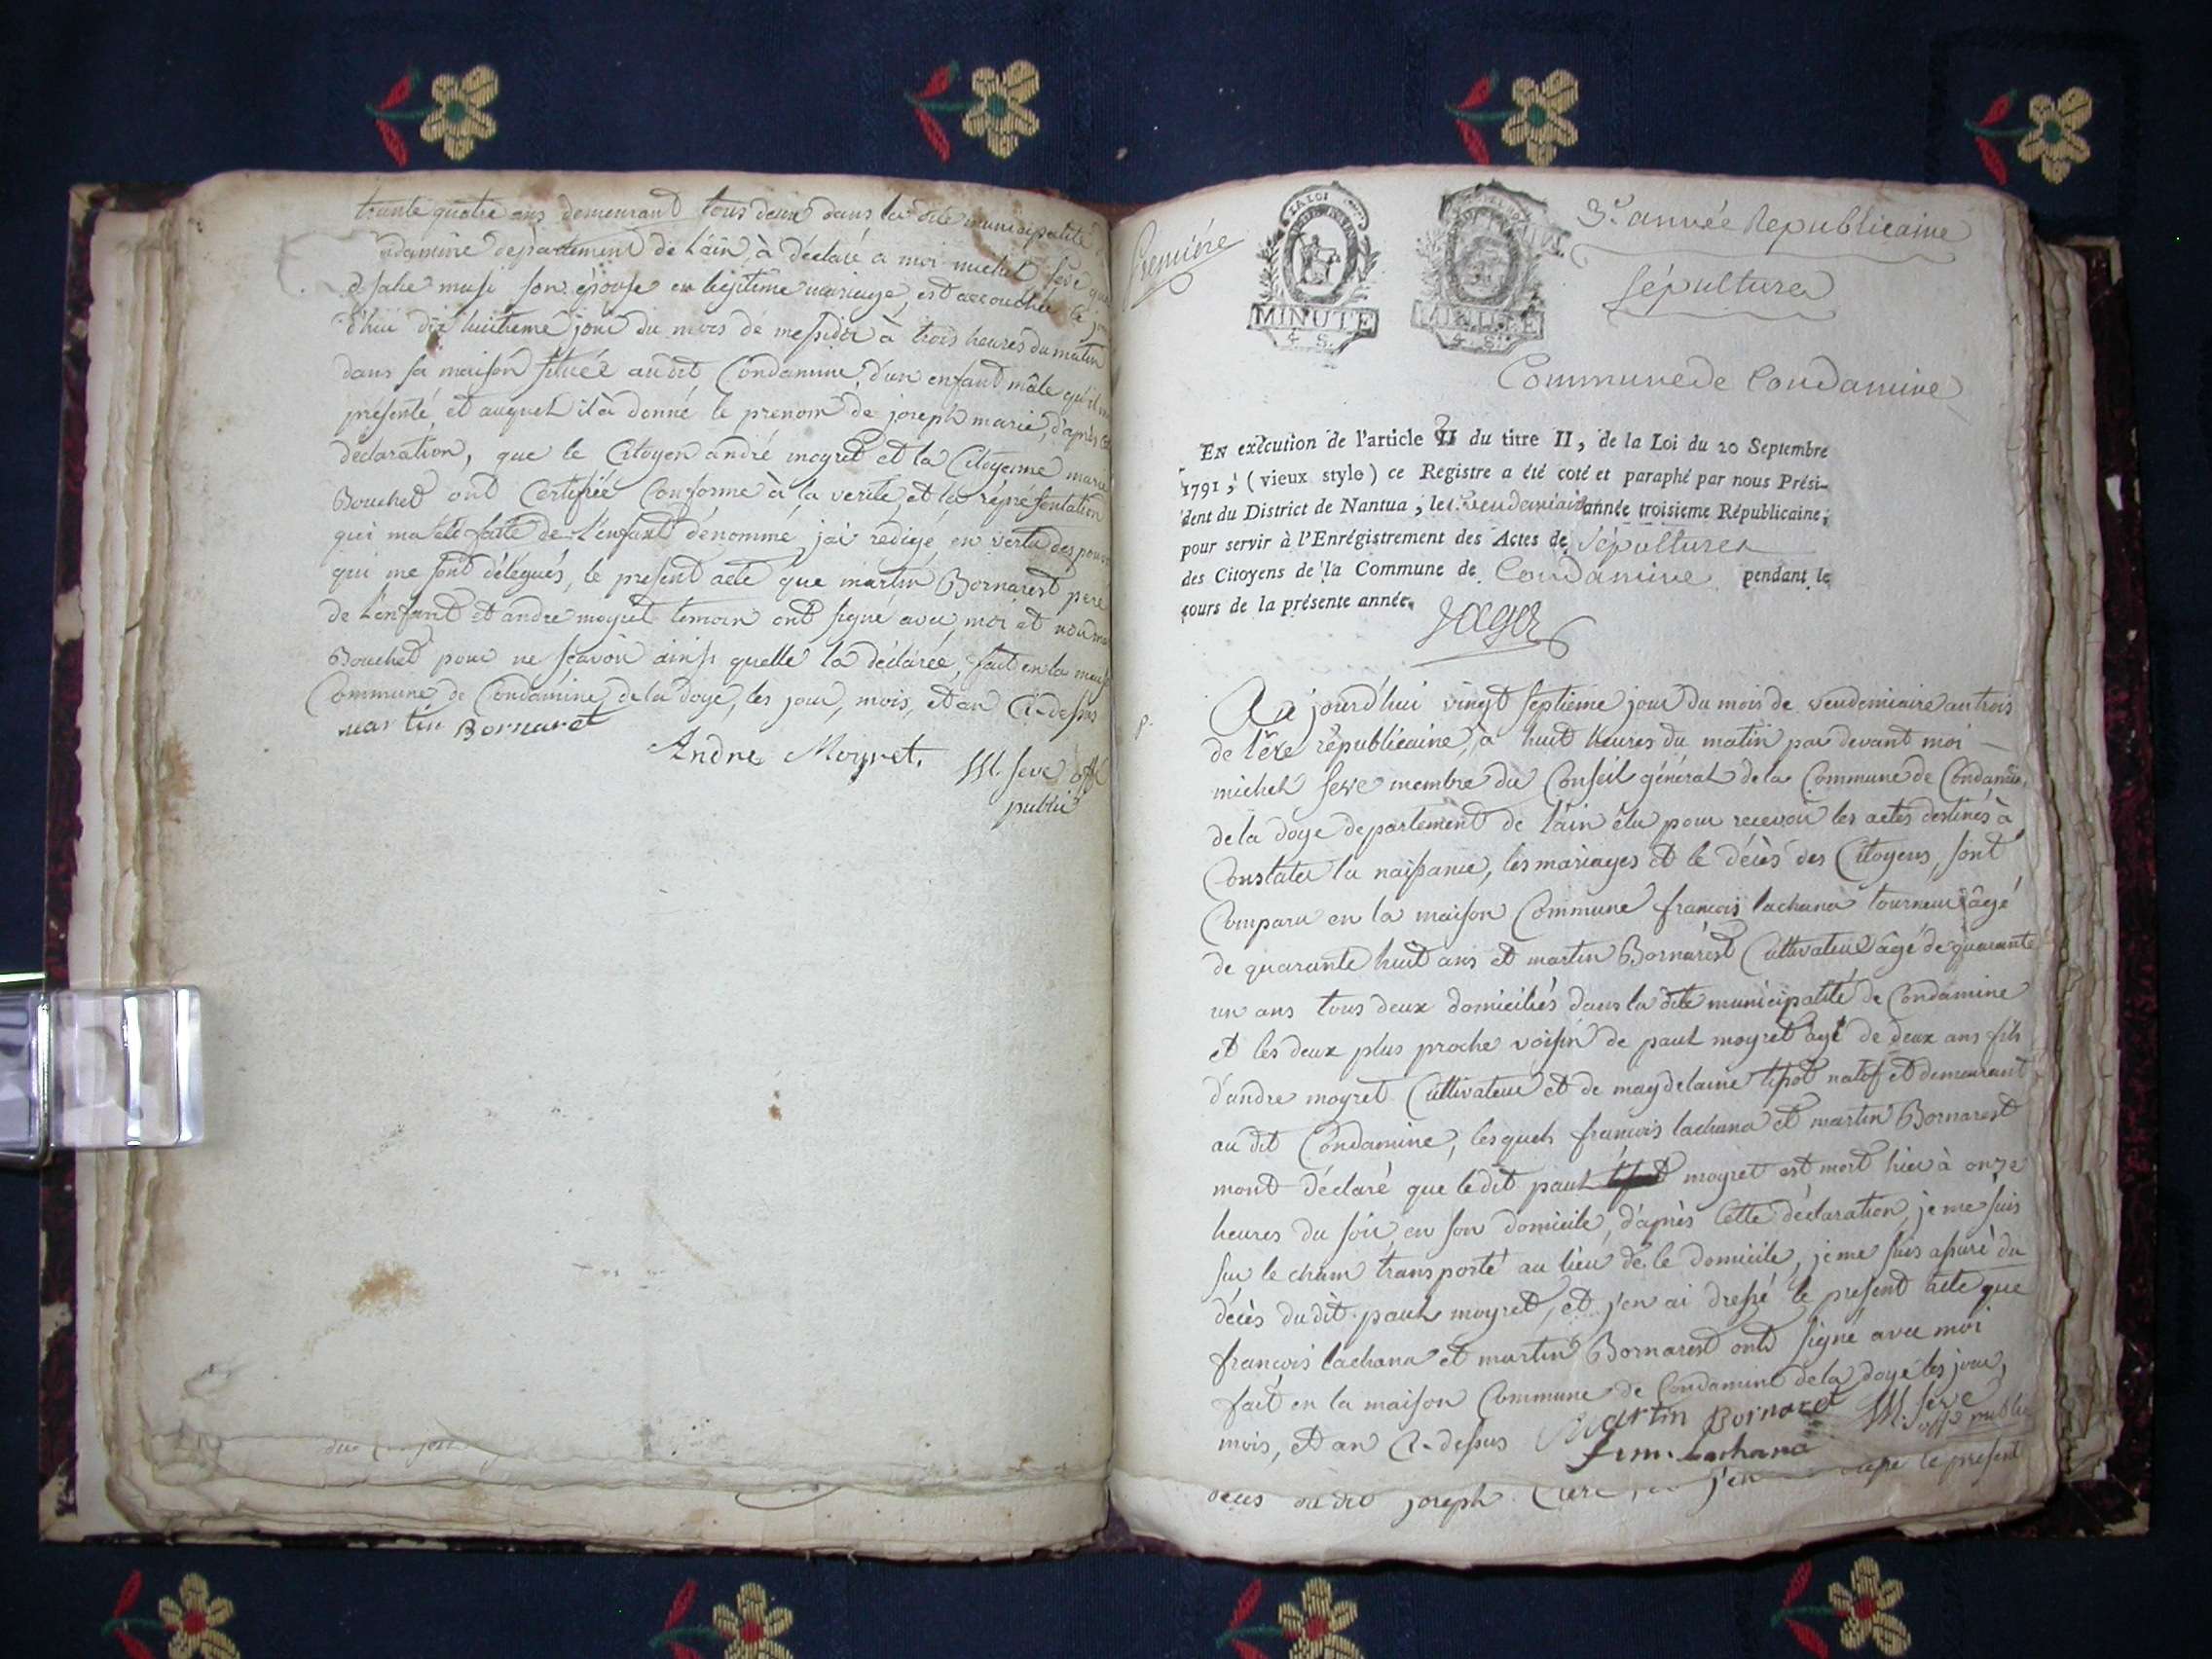 trente quatre ans demeurant tous deux dans la dite municipalité
damine departement de l'ain, à déclaré a moi michel seve que
son épouse en legitime mariage, est accouchée le
d'hui dix huitieme jour du mois de messidor à trois heures du matin
dans sa maison située audit Condamine, d'un enfant mâle qu'il
présenté, et auquel il à donné le prenom de joseph marie, d'après
déclaration, que le Citoyen andré moyret et la Citoyenne marie
Bouchet ont Certifiée Conforme à la verite, et la représentation
qui ma été faite de l'enfant dénommé, jai redigé, en vertu des
qui me sont délégués, le present acte que martin Bornarest pere
de l'enfant et andre moyret temoin ont signé avec moi et non
Bouchet pour ne sçavoir ainsi quelle la déclarée, fait en la
Commune de Condamine de la doye, les jour, mois, et an Ci-dessus
martin Bornaret
Andre Moyret. M. seve off
public
Premiére
LA LOI
MINUTE
4. S.
MINUTE
4. S.
3e. année Republicaine
Sépultures
Commune de Condamine
EN exécution de l'article II du titre II, de la Loi du 20 Septembre
1791, (vieux style) ce Registre a été coté et paraphé par nous Prési-
dent du District de Nantua, le vendemiaire année troisieme Républicaine,
pour servir à l'Enrégistrement des Actes de Sépultures
des Citoyens de la Commune de Condamine pendant le
cours de la présente année.
Jager
Au jourd'hui vingt septieme jour du mois de vendemiaire an trois
de l'ére républicaine, à huit heures du matin par devant moi
michel seve membre du Conseil général de la Commune de Condamine
de la doye departement de l'ain élu pour recevoir les actes destinés à
Constater la naissance, les mariages et le décès des Citoyens, sont
Comparu en la maison Commune francois lachana tourneur âgé
de quarante huit ans et martin Bornarest Cultivateur âgé de quarante
un ans tous deux domiciliés dans la dite municipalité de Condamine
et les deux plus proche voisin de paul moyret agé de deux ans fils
d'andre moyret Cultivateur et de maydelaine tipot natif et demeurant
au dit Condamine, lesquels françois lachana et martin Bornarest
mont déclaré que ledit paul moyret est mort hier à onze
heures du soir en son domicile, d'après Cette déclaration, je me suis
sur le cham transporté au lieu de ce domicile, je me suis assuré du
décès dudit paul moyret, et j'en ai dressé le present acte que
françois lachana et martin Bornarest ont signé avec moi
fait en la maison Commune de Condamine de la doye les jour,
mois, et an Ci-dessus Martin Bornaret M. seve
off public
lachana
décès du dit joseph j'en le present